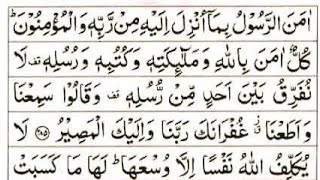 اٰمَنَ الرَّسُوْلُ بِمَاۤ اُنْزِلَ اِلَيْهِ مِنْ رَّبِّهٖ وَ الْمُؤْمِنُوْنَ ؕ
كُلٌّ اٰمَنَ بِاللّٰهِ وَ مَلٰٓئِكَتِهٖ وَ كُتُبِهٖ وَ رُسُلِهٖ قف لَا
نُفَرِّقُ بَيْنَ اَحَدٍ مِّنْ رُّسُلِهٖ قف وَ قَالُوْا سَمِعْنَا
وَ اَطَعْنَا ق٘ غُفْرَانَكَ رَبَّنَا وَ اِلَيْكَ الْمَصِيْرُ ﴿۲۸۵﴾ لَا
يُكَلِّفُ اللّٰهُ نَفْسًا اِلَّا وُسْعَهَا ؕ لَهَا مَا كَسَبَتْ